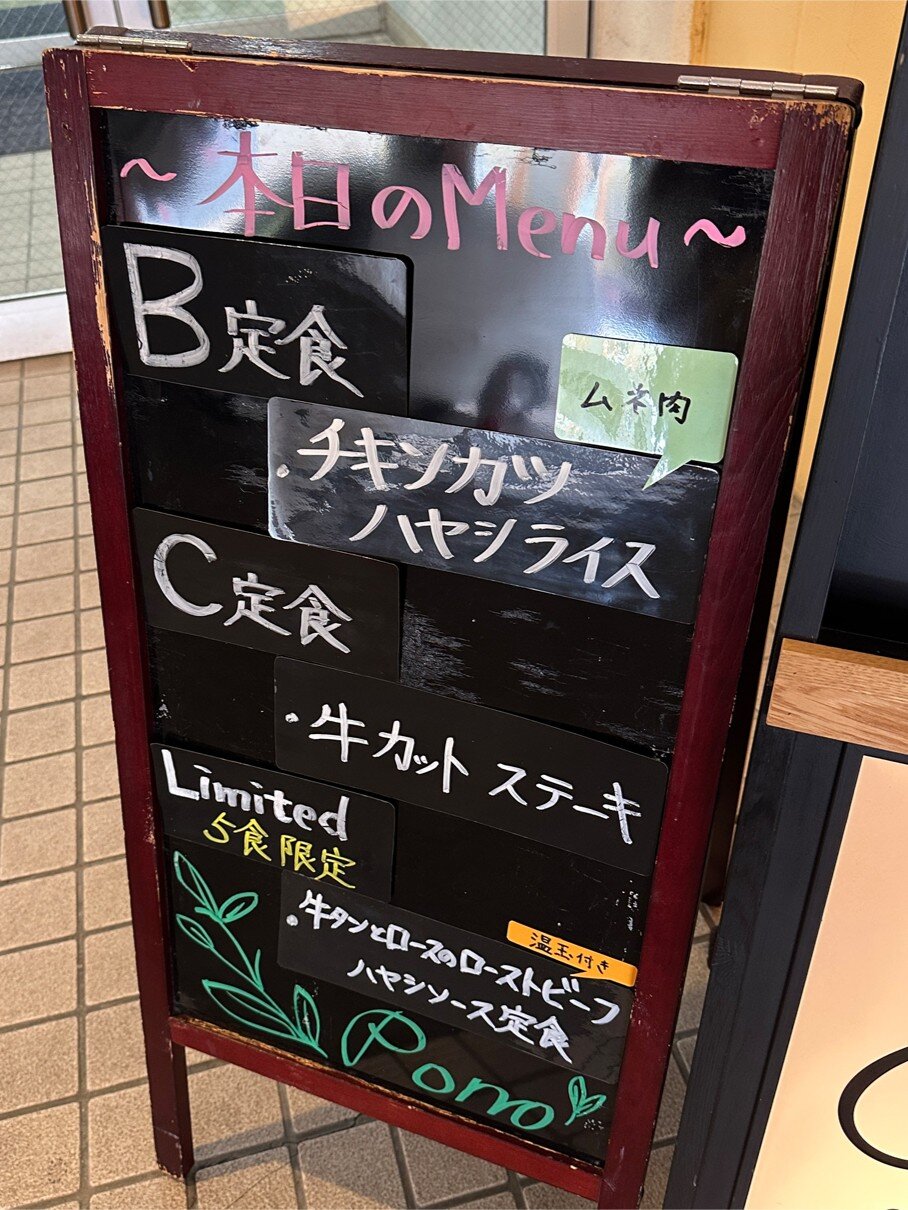 ～本日のMenu～
B定食
ムネ肉
・チキンカツ
ハヤシライス
C定食
・牛カットステーキ
Limited
5食限定
温玉付き
・牛タンとロースのローストビーフ
ハヤシソース定食
Pono